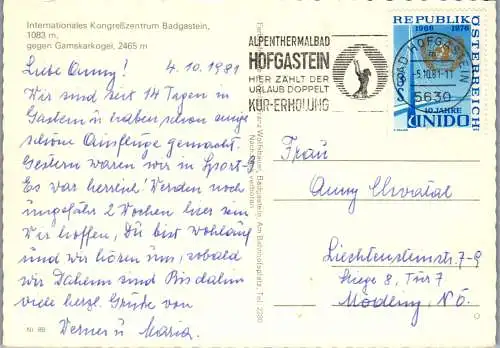 Internationales Kongreßzentrum Badgastein,
1083 m,
gegen Gamskarkogel, 2465 m
Liebe Anny! 4.10.1981
Wir sind seit 14 Tagen in
Gastein u. haben schon einige
schöne Ausflüge gemacht.
Gestern waren wir in Sport-G.
Es war herrlich! Werden noch
ungefähr 2 Wochen hier sein
Wir hoffen, Du bist wohlauf
und wir hören uns, sobald
wir Daheim sind. Bis dahin
viele herzl. Grüße von
Werner u. Maria.
Nr. 88
Franz Wolfsbauer, Badgastein, Am Bahnhofplatz, Tel. 2280
Nachdruck verboten
ALPENTHERMALBAD
HOFGASTEIN
HIER ZÄHLT DER
URLAUB DOPPELT
KUR-ERHOLUNG
BAD HOFGASTEIN
-5.10.81-11
5630
REPUBLIK
ÖSTERREICH
1966 1976
10 JAHRE
UNIDO
Frau
Anny Chvatal
Liechtensteinstr. 7-9
Stiege 8, Tür 7
Mödling, N.Ö.